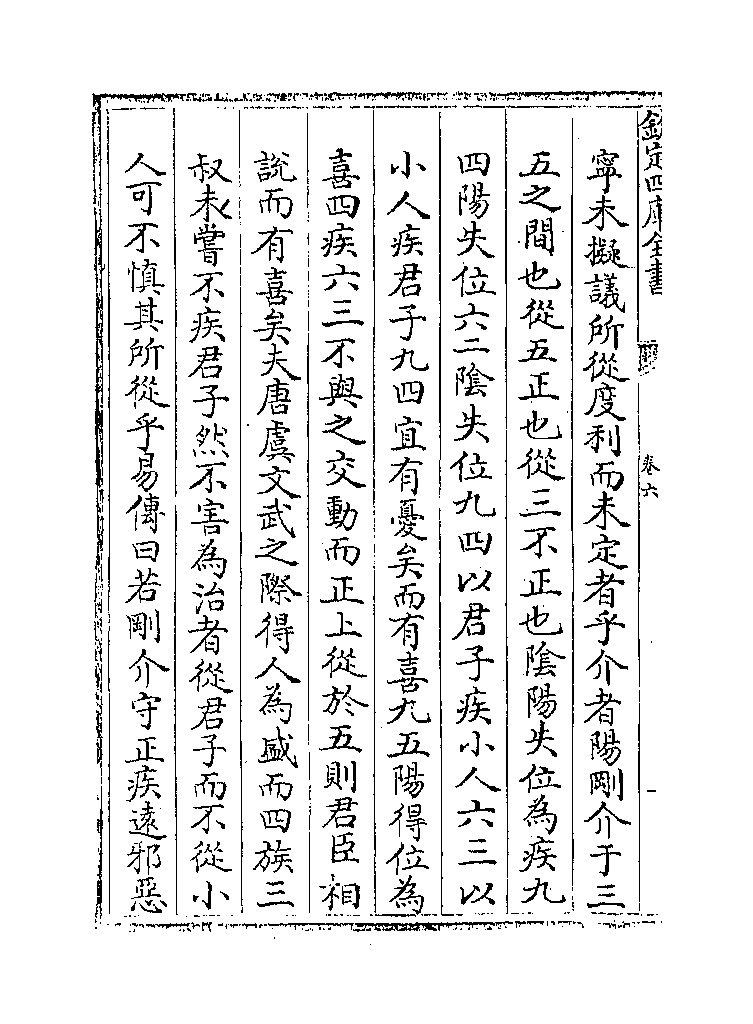 欽定四庫全書
卷六
寧未擬議所從度利而未定者乎介者陽剛介于三
五之間也從五正也從三不正也陰陽失位為疾九
四陽失位六二陰失位九四以君子疾小人六三以
小人疾君子九四宜有憂矣而有喜九五陽得位為
喜四疾六三不與之交動而正上從於五則君臣相
說而有喜矣夫唐虞文武之際得人為盛而四族三
叔未嘗不疾君子然不害為治者從君子而不從小
人可不慎其所從乎易傳曰若剛介守正疾遠邪惡